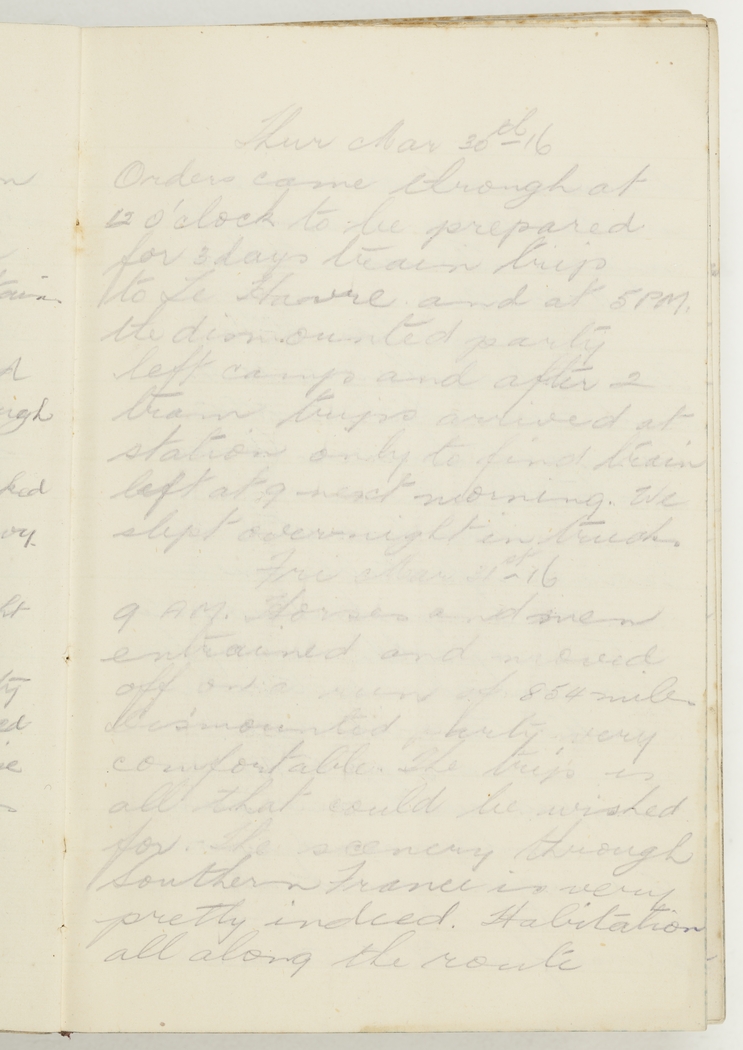 Thur Mar 30th-16
Orders came through at
12 o'clock to be prepared
for 3 days train trip
to Le Havre and at 5 PM.
the dismounted party
left camp and after 2
tram trips arrived at
station only to find train
left at 9 next morning. We
slept overnight in trucks
Fri Mar 31st-16
9 AM. Horses and men
entrained and moved
off on a run of 854 miles
Dismounted party very
comfortable. The trip is
all that could be wished
for. The scenery through
Southern France is very
pretty indeed. Habitation
all along the route
n
tain
A
eigh
ked
oy.
ht
ty
ed
ie